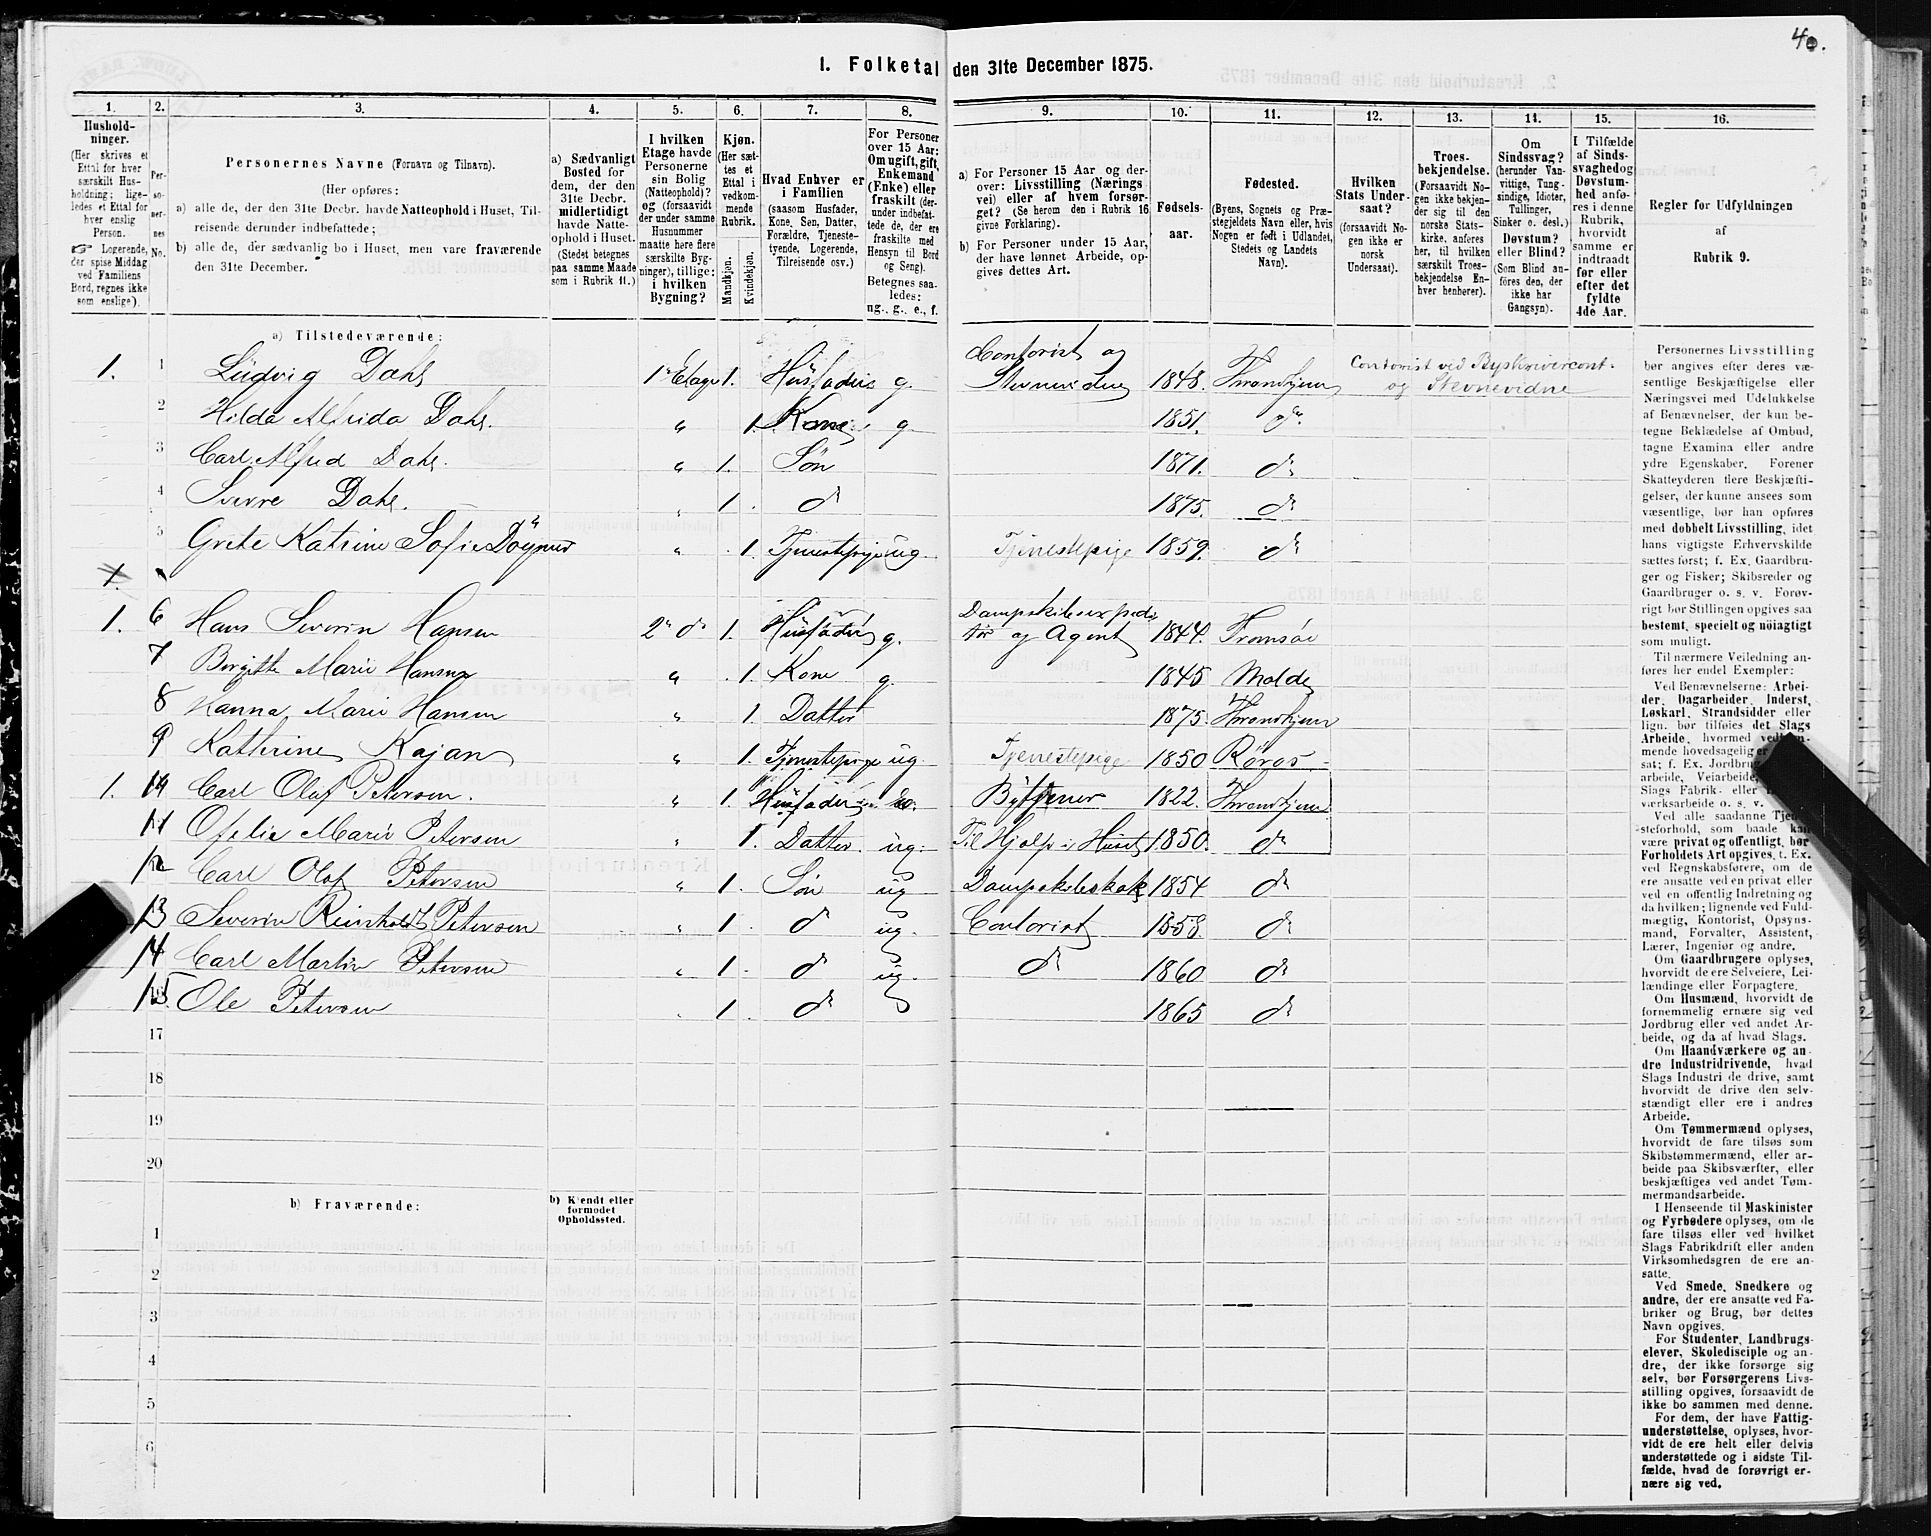 40.
1. Folketal den 31te December 1875.
1. 2. 3. 4. 5. 6. 7. 8. 9. 10. 11. 12. 13. 14. 15. 16.
Husholdninger. (Her skrives et Ettal for hver særskilt Husholdning; ligeledes et Ettal for hver enslig Person. ☞ Logerende, der spise Middag ved Familiens Bord, regnes ikke som enslige).
Personernes No.
Personernes Navne (Fornavn og Tilnavn).
(Her opføres:
a) alle de, der den 31te Decbr. havde Natteophold i Huset, Tilreisende derunder indbefattede;
b) alle de, der sædvanlig bo i Huset, men vare fraværende den 31te December.
a) Sædvanligt Bosted for dem, der den 31te Decbr. midlertidigt havde Natteophold i Huset. (Stedet betegnes paa samme Maade som i Rubrik 11.)
I hvilken Etage havde Personerne sin Bolig (Natteophold)? og (forsaavidt der under samme Husnummer maatte høre flere særskilte Bygninger), tillige: i hvilken Bygning?
Kjøn. (Her sættes et Ettal i vedkommende Rubrik. Mandkjøn. Kvindekjøn.
Hvad Enhver er i Familien (saasom Husfader, Kone, Søn, Datter, Forældre, Tjenestetyende, Logerende, Tilreisende osv.)
For Personer over 15 Aar: Om ugift, gift, Enkemand (Enke) eller fraskilt (derunder indbefattede de, der ere fraskilte med Hensyn til Bord og Seng). Betegnes saaledes: ug., g., e., f.
a) For Personer 15 Aar og derover: Livsstilling (Næringsvei) eller af hvem forsørget? (Se herom den i Rubrik 16 givne Forklaring).
b) For Personer under 15 Aar, der have lønnet Arbeide, opgives dettes Art.
Fødselsaar.
Fødested. (Byens, Sognets og Præstegjeldets Navn eller, hvis Nogen er født i Udlandet, Stedets og Landets Navn).
Hvilken Stats Undersaat? (forsaavidt Nogen ikke er norsk Undersaat).
Troesbekjendelse. (Forsaavidt Nogen ikke bekjender sig til den norske Statskirke, anføres her, til hvilken særskilt Troesbekjendelse Enhver henhører).
Om Sindssvag? (herunder Vanvittige, Tungsindige, Idioter, Tullinger, Sinker o. desl.) Døvstum? eller Blind? (Som Blind anføres den, der ikke har Gangsyn).
I Tilfælde af Sindssvaghed og Døvstumhed anføres i denne Rubrik, hvorvidt samme er indtraadt før eller efter det fyldte 4de Aar.
Regler for Udfyldningen af Rubrik 9.
a) Tilstedeværende:
1. 1 Ludvig Dahl 1ste Etage 1. Husfader g. Contorist og Stevnevidne 1848. Throndhjem Contorist ved Byskrivercont. og Stevnevidne
2 Hilda Alfrida Dahl. " 1. Kone g. 1851. do
3 Carl Alfred Dahl. " 1. Søn 1871. do
4 Sverre Dahl. " 1. do 1875. do
5 Grete Katrine Sofie " 1. Tjenestepige ug. Tjenestepige 1859. do
1.
1. 6 Hans Severin Hansen 2den do 1. Husfader g. Dampskibsexpeditør og Agent 1844. Tromsøe
7 Birgitte Marie Hansen " 1. Kone g. 1845 Molde
8 Hanna Marie Hansen " 1. Datter 1875. Throndhjem
9 Kathrine Kajan " 1. Tjenestepige ug. Tjenestepige 1850 Røros
1. 10 Carl Oluf Petersen. " 1. Husfader Bytjener 1822. Throndhjem
11 Ofelie Marie Petersen " 1. Datter. ug. Til Hjælp i Huset 1850. do
12 Carl Olaf Petersen " 1. Søn ug Dampskibskok 1854 do
13 Severin Reinholdt Petersen " 1. do ug. Contorist 1858. do
14 Carl Martin Petersen " 1. do ug. do 1860 do
15 Ole Petersen " 1. do 1865 do
17
18
19
20
b) Fraværende: b) Kjendt eller formodet Opholdssted.
1
2
3
4
5
6
Personernes Livsstilling bør angives efter deres væsentlige Beskjæftigelse eller Næringsvei med Udelukkelse af Benævnelser, der kun betegne Beklædelse af Ombud, tagne Examina eller andre ydre Egenskaber. Forener Skatteyderen flere Beskjæftigelser, der kunne ansees som væsentlige, bør han opføres med dobbelt Livsstilling, idet hans vigtigste Erhvervskilde sættes først; f. Ex. Gaardbruger og Fisker; Skibsreder og Gaardbruger o. s. v. Forøvrigt bør Stillingen opgives saa bestemt, specielt og nöiagtigt som muligt.
Til nærmere Veiledning anføres her endel Exempler:
Ved Benævnelserne: Arbeider, Dagarbeider, Inderst, Løskarl, Strandsidder eller lign. bør tilføies det Slags Arbeide, hvormed
mende hovedsagelig er
sat; f. Ex. Jordbrug
arbeide, Veiarbeide,
Slags Fabrik- eller
værksarbeide o. s. v.
Ved alle saadanne Tjenesteforhold, som baade kan være privat og offentligt, bør Forholdets Art opgives, t. Ex. ved Regnskabsførere, om de ere ansatte ved en privat eller ved en offentlig Indretning og da hvilken; lignende ved Fuldmægtig, Kontorist, Opsynsmand, Forvalter, Assistent, Lærer, Ingeniør og andre.
Om Gaardbrugere oplyses, hvorvidt de ere Selveiere, Leilændinge eller Forpagtere.
Om Husmænd, hvorvidt de fornemmelig ernære sig ved Jordbrug eller ved andet Arbeide, og da af hvad Slags.
Om Haandværkere og andre Industridrivende, hvad Slags Industri de drive, samt hvorvidt de drive den selvstændigt eller ere i andres Arbeide.
Om Tømmermænd oplyses, hvorvidt de fare tilsøs som Skibstømmermænd, eller arbeide paa Skibsværfter, eller beskjæftiges ved andet Tømmermandsarbeide.
I Henseende til Maskinister og Fyrbødere oplyses, om de fare tilsøs eller ved hvilket Slags Fabrikdrift eller anden Virksomhedsgren de ere ansatte.
Ved Smede, Snedkere og andre, der ere ansatte ved Fabriker og Brug, bør dettes Navn opgives.
For Studenter, Landbrugselever, Skoledisciple og andre, der ikke forsørge sig selv, bør Forsørgerens Livsstilling opgives, forsaavidt de ikke bo sammen med denne.
For dem, der have Fattigunderstøttelse, oplyses, hvorvidt de ere helt eller delvis understøttede og i sidste Tilfælde, hvad de forøvrigt ernære sig ved.